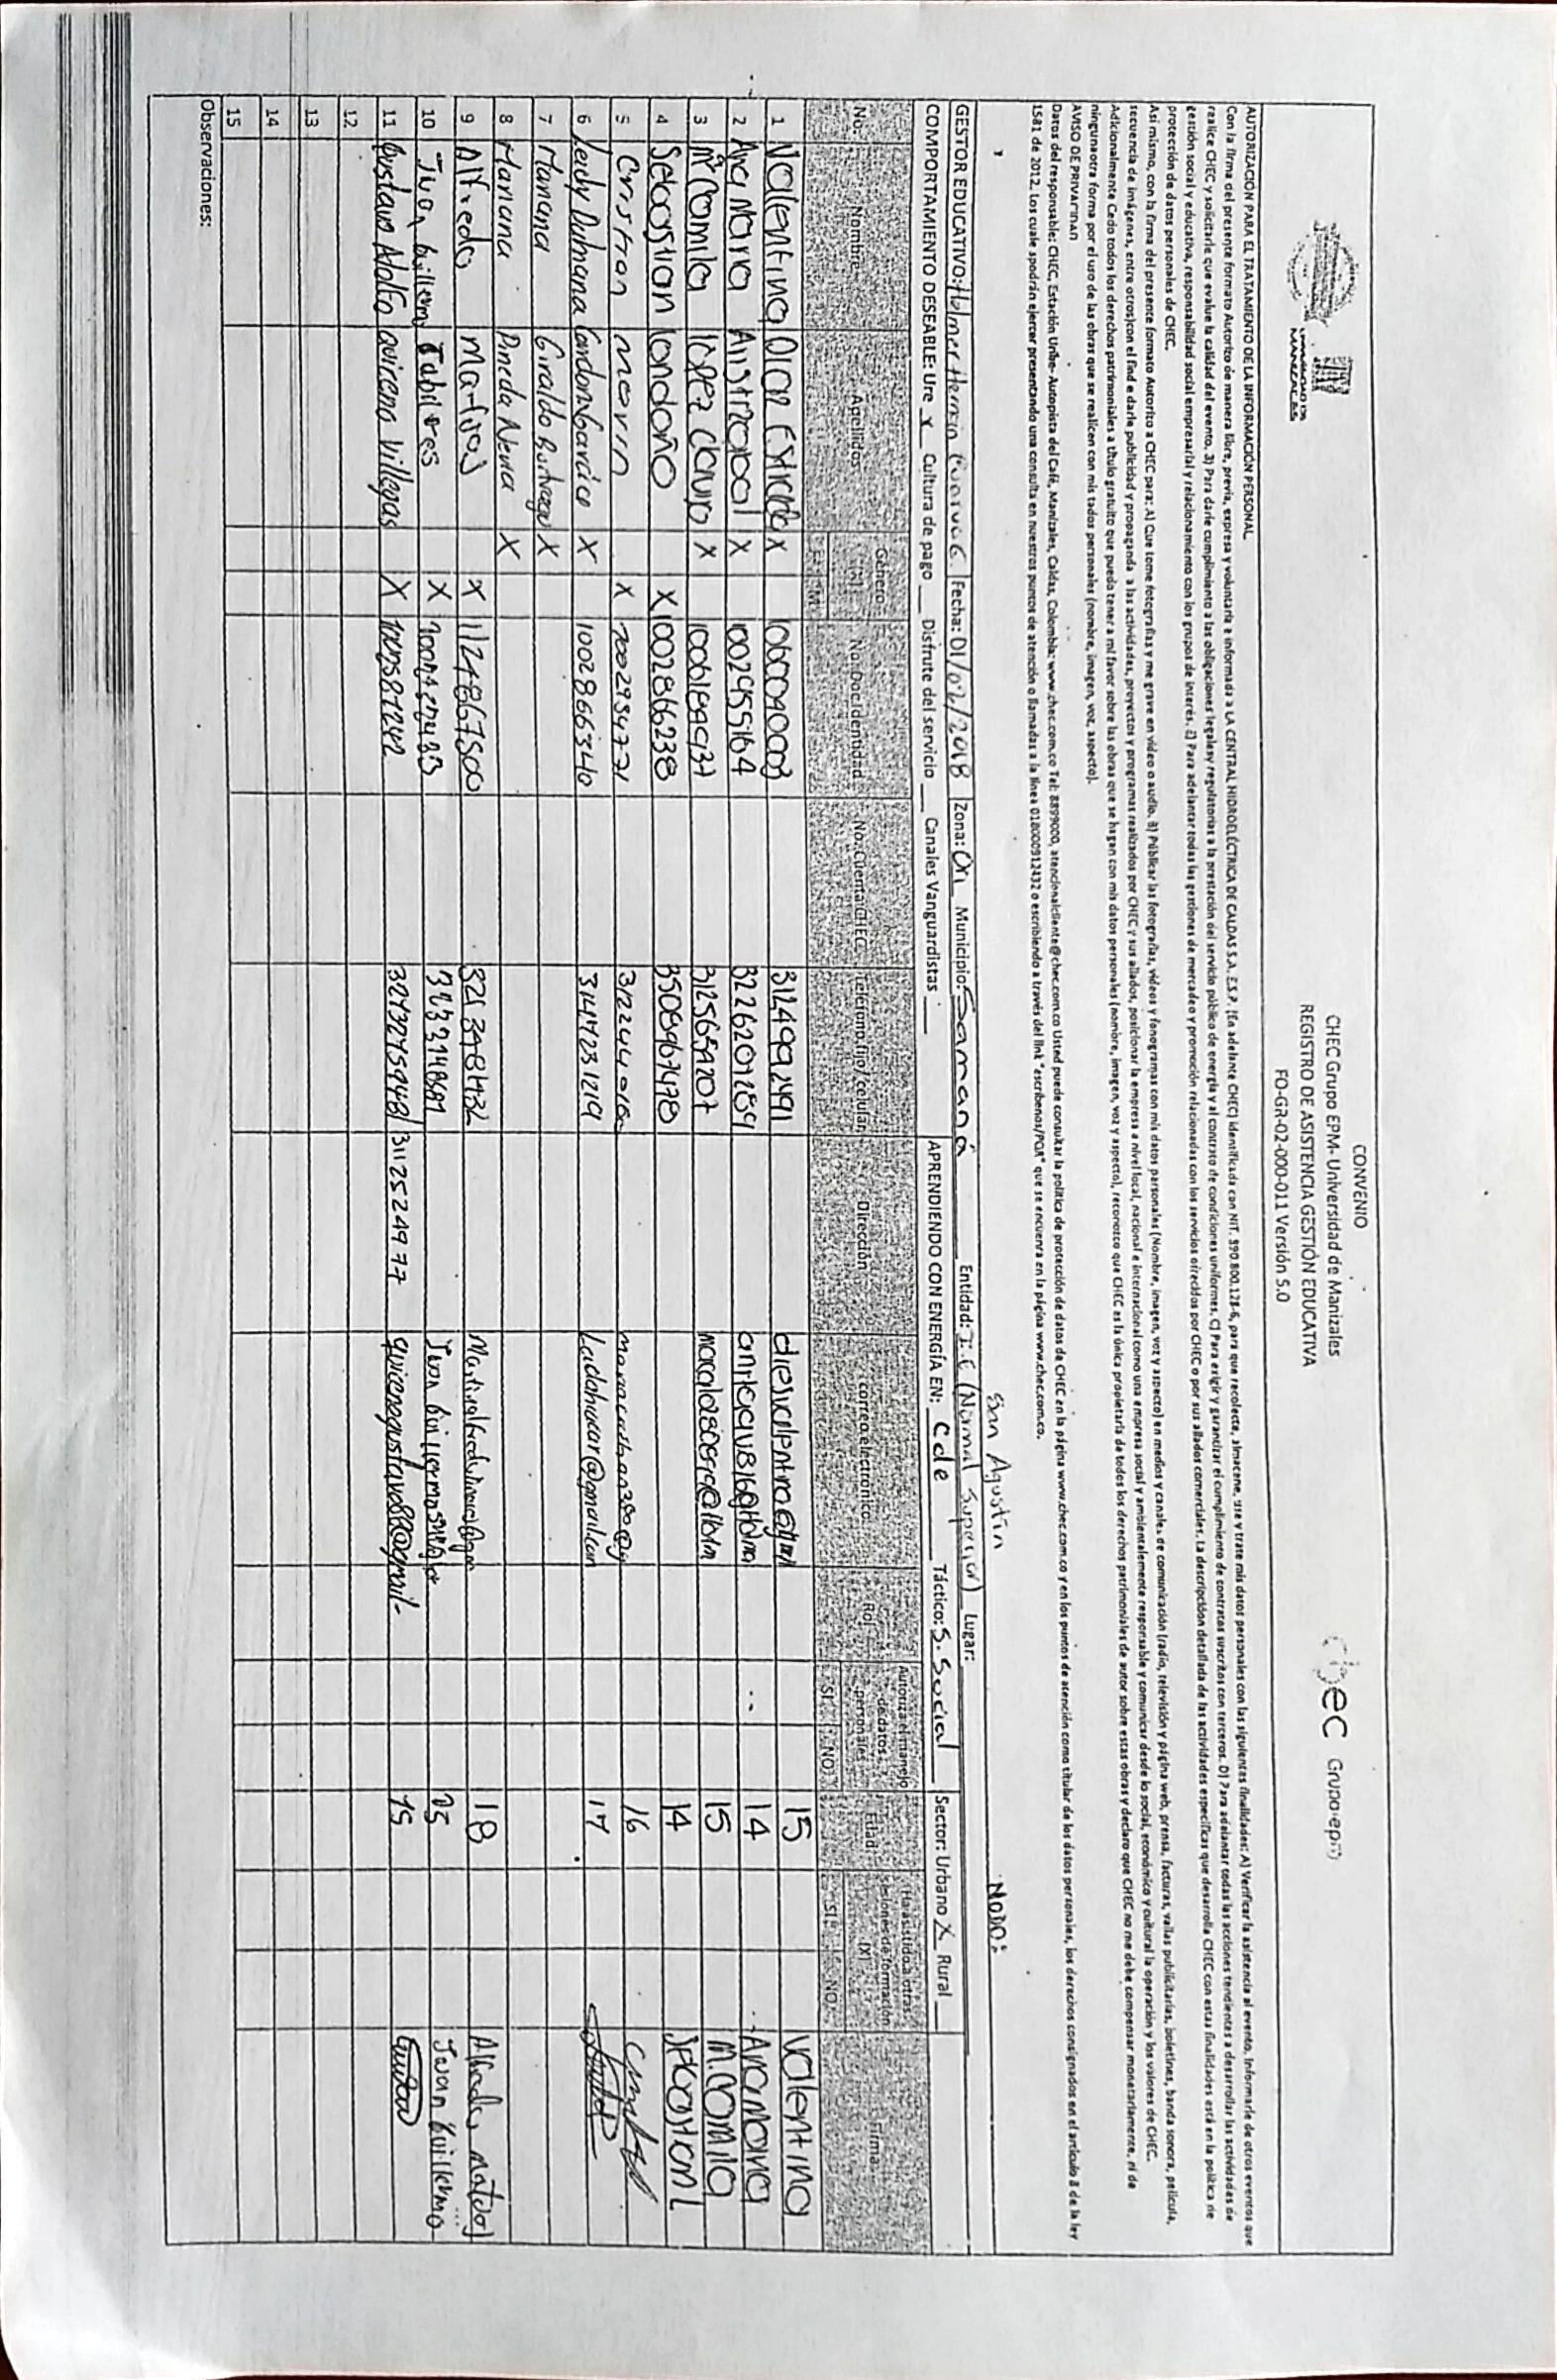 CONVENIO
CHEC Grupo EPM- Universidad de Manizales
REGISTRO DE ASISTENCIA GESTIÓN EDUCATIVA
FO-GR-02-000-011 Versión 5.0
UNIVERSIDAD DE MANIZALES
chec Grupo·epm
AUTORIZACIÓN PARA EL TRATAMIENTO DE LA INFORMACIÓN PERSONAL
Con la firma del presente formato Autorizo de manera libre, previa, expresa y voluntaria e informada a LA CENTRAL HIDROELÉCTRICA DE CALDAS S.A. E.S.P. (En adelante CHEC) identificada con NIT. 890.800.128-6, para que recolecte, almacene, use y trate mis datos personales con las siguientes finalidades: A) Verificar la asistencia al evento, informarle de otros eventos que
realice CHEC y solicitarle que evalue la calidad del evento. B) Para darle cumplimiento a las obligaciones legales y regulatorias a la prestación del servicio público de energía y al contrato de condiciones uniformes. C) Para exigir y garantizar el cumplimiento de contratos suscritos con terceros. D) Para adelantar todas las acciones tendientes a desarrollar las actividades de
gestión social y educativa, responsabilidad social empresarial y relacionamiento con los grupos de interés. E) Para adelantar todas las gestiones de mercadeo y promoción relacionadas con los servicios ofrecidos por CHEC o por sus aliados comerciales. La descripción detallada de las actividades específicas que desarrolla CHEC con estas finalidades está en la política de
protección de datos personales de CHEC.
Así mismo, con la firma del presente formato Autorizo a CHEC para: A) Que tome fotografías y me grave en video o audio. B) Publicar las fotografías, videos y fonogramas con mis datos personales (Nombre, imagen, voz y aspecto) en medios y canales de comunicación (radio, televisión y página web, prensa, facturas, vallas publicitarias, boletines, banda sonora, película,
secuencia de imágenes, entre otros)con el find e darle publicidad y propaganda a las actividades, proyectos y programas realizados por CHEC y sus aliados, posicionar la empresa a nivel local, nacional e internacional como una empresa social y ambientalmente responsable y comunicar desde lo social, económico y cultural la operación y los valores de CHEC.
Adicionalmente Cedo todos los derechos patrimoniales a título gratuito que puedo tener a mi favor sobre las obras que se hagan con mis datos personales (nombre, imagen, voz y aspecto), reconozco que CHEC es la única propietaria de todos los derechos patrimoniales de autor sobre estas obras y declaro que CHEC no me debe compensar monetariamente, ni de
ningunaotra forma por el uso de las obras que se realicen con mis tados personales (nombre, imagen, voz, aspecto).
AVISO DE PRIVACIDAD
Datos del responsable: CHEC, Estación Uribe- Autopista del Café, Manizales, Caldas, Colombia: www.chec.com.co Tel: 8899000, atencionalcliente@chec.com.co Usted puede consultar la política de protección de datos de CHEC en la página www.chec.com.co y en los puntos de atención como titular de los datos personales, los derechos consignados en el artículo 8 de la ley
1581 de 2012. Los cuale spodrán ejercer presentando una consulta en nuestros puntos de atención o llamadas a la línea 018000912432 o escribiendo a través del link "escríbenos/PQR" que se encuenra en la página www.chec.com.co.
San Agustín
NODO:
GESTOR EDUCATIVO: Holmer Hernán G. Fecha: 01/02/2018 Zona: Ori Municipio: Samaná Entidad: I.E (Normal Superior) Lugar:
COMPORTAMIENTO DESEABLE: Ure x Cultura de pago Disfrute del servicio Canales Vanguardistas APRENDIENDO CON ENERGÍA EN: Cde Táctico: S. Social Sector: Urbano X Rural
No. Nombre Apellidos Género F M No. Doc Identidad No. Cuenta CHEC Teléfono fijo/celular Dirección correo electronico Rol Autoriza el manejo de datos personales SI NO Edad Ha asistido a otras sesiones de formación (X) SI NO Firma
1 Valentina Diaz x 3124992491 15 Valentina
2 Ana Maria Aristizabal x 1002955164 14 Ana Maria
3 Mª Camila lopez Clavijo x 3125659207 15 M. Camila
4 Sebastian londoño X 1002866238 3508967478 14 Sebastian L
5 Cristian marin x 7002954771 16
6 Leidy Dahiana Cardona Garcia x 1002866340 3147231219 Ladahucar@gmail.com 17
7 Mariana Giraldo X
8 Mariana Pineda X
9 Alfredo x 1124867500 18 Alfredo
10 Juan Guillermo X 3233148681 15 Juan Guillermo
11 Gustavo Adolfo quicena Villegas X 3113252 4977 quicenagustavo88@gmail- 15
12
13
14
15
Observaciones: